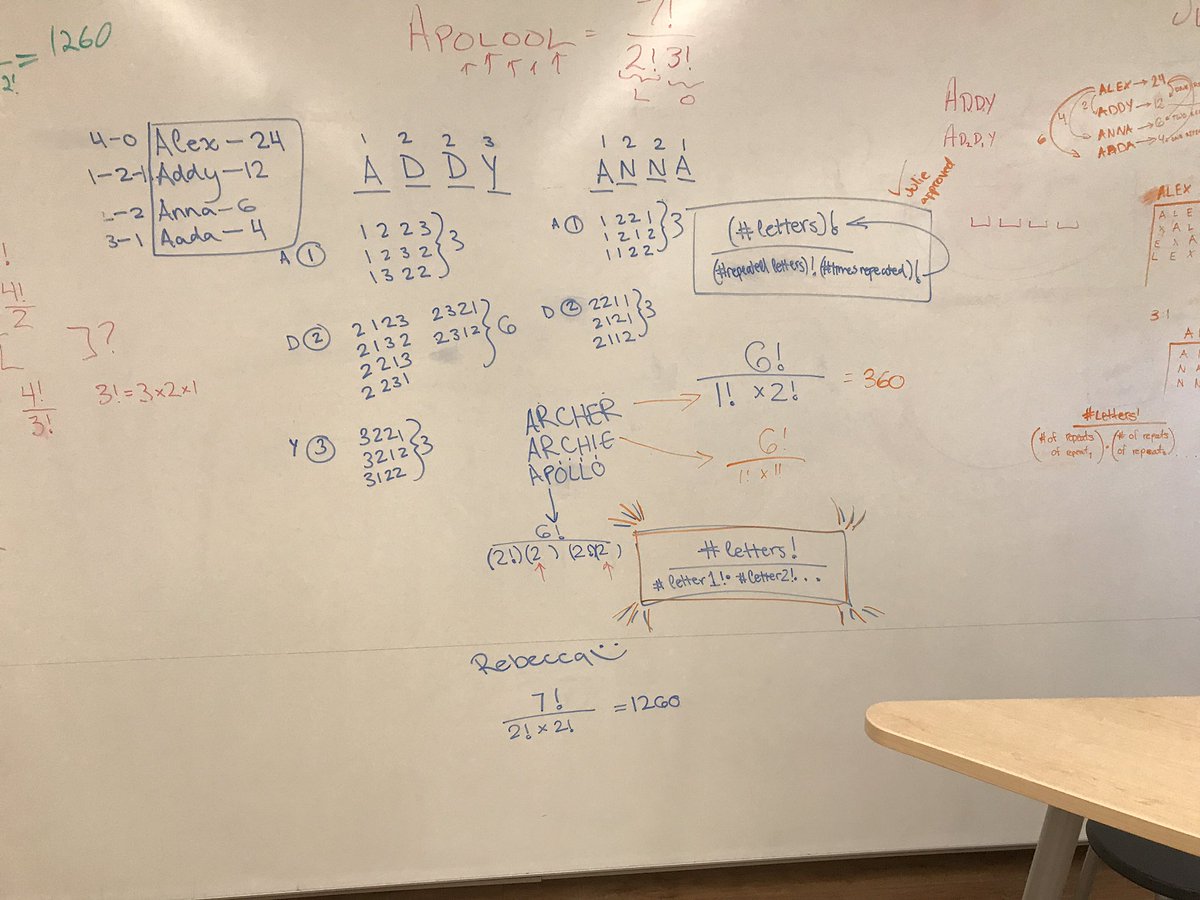 = 1260
2!
APOLOOL = 7!
2! 3!
L O
4-0 Alex - 24
1-2-1 Addy - 12
2-2 Anna - 6
3-1 Aada - 4
1 2 2 3
A D D Y
A ① 1 2 2 3
1 2 3 2
1 3 2 2
} 3
D ② 2 1 2 3 2 3 2 1
2 1 3 2 2 3 1 2
2 2 1 3
2 2 3 1
} 6
Y ③ 3 2 2 1
3 2 1 2
3 1 2 2
} 3
1 2 2 1
A N N A
A ① 1 2 2 1
1 2 1 2
1 1 2 2
} 3
D ② 2 2 1 1
2 1 2 1
2 1 1 2
} 3
Julie
approved
(# letters)!
(#repeated letters)! (#times repeated)!
!
4!
2
]?
4!
3!
3! = 3 × 2 × 1
ARCHER
ARCHIE
APOLLO
6!
1! × 2!
= 360
6!
1! × 1!
6!
(2!)(2 ) (2!)(2 )
# letters!
# letter 1! • # letter 2! . . .
Rebecca
7!
2! × 2!
= 1260
ADDY
AD₂D₁Y
ALEX → 24
2 ADDY → 12
4 ANNA → 6
6 AADA → 4
ALEX
A L E
L E X
3!
A
N
N N
# letters!
(# of repeats of repeat₁) • (# of repeats of repeat₂) . . .